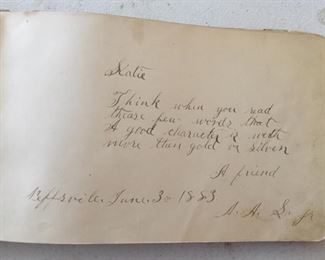 Katie
Think when you read
these few words that
A good character is worth
more then gold or silver
A friend
Neffsville. June. 30 1883
A. A. L. Jr